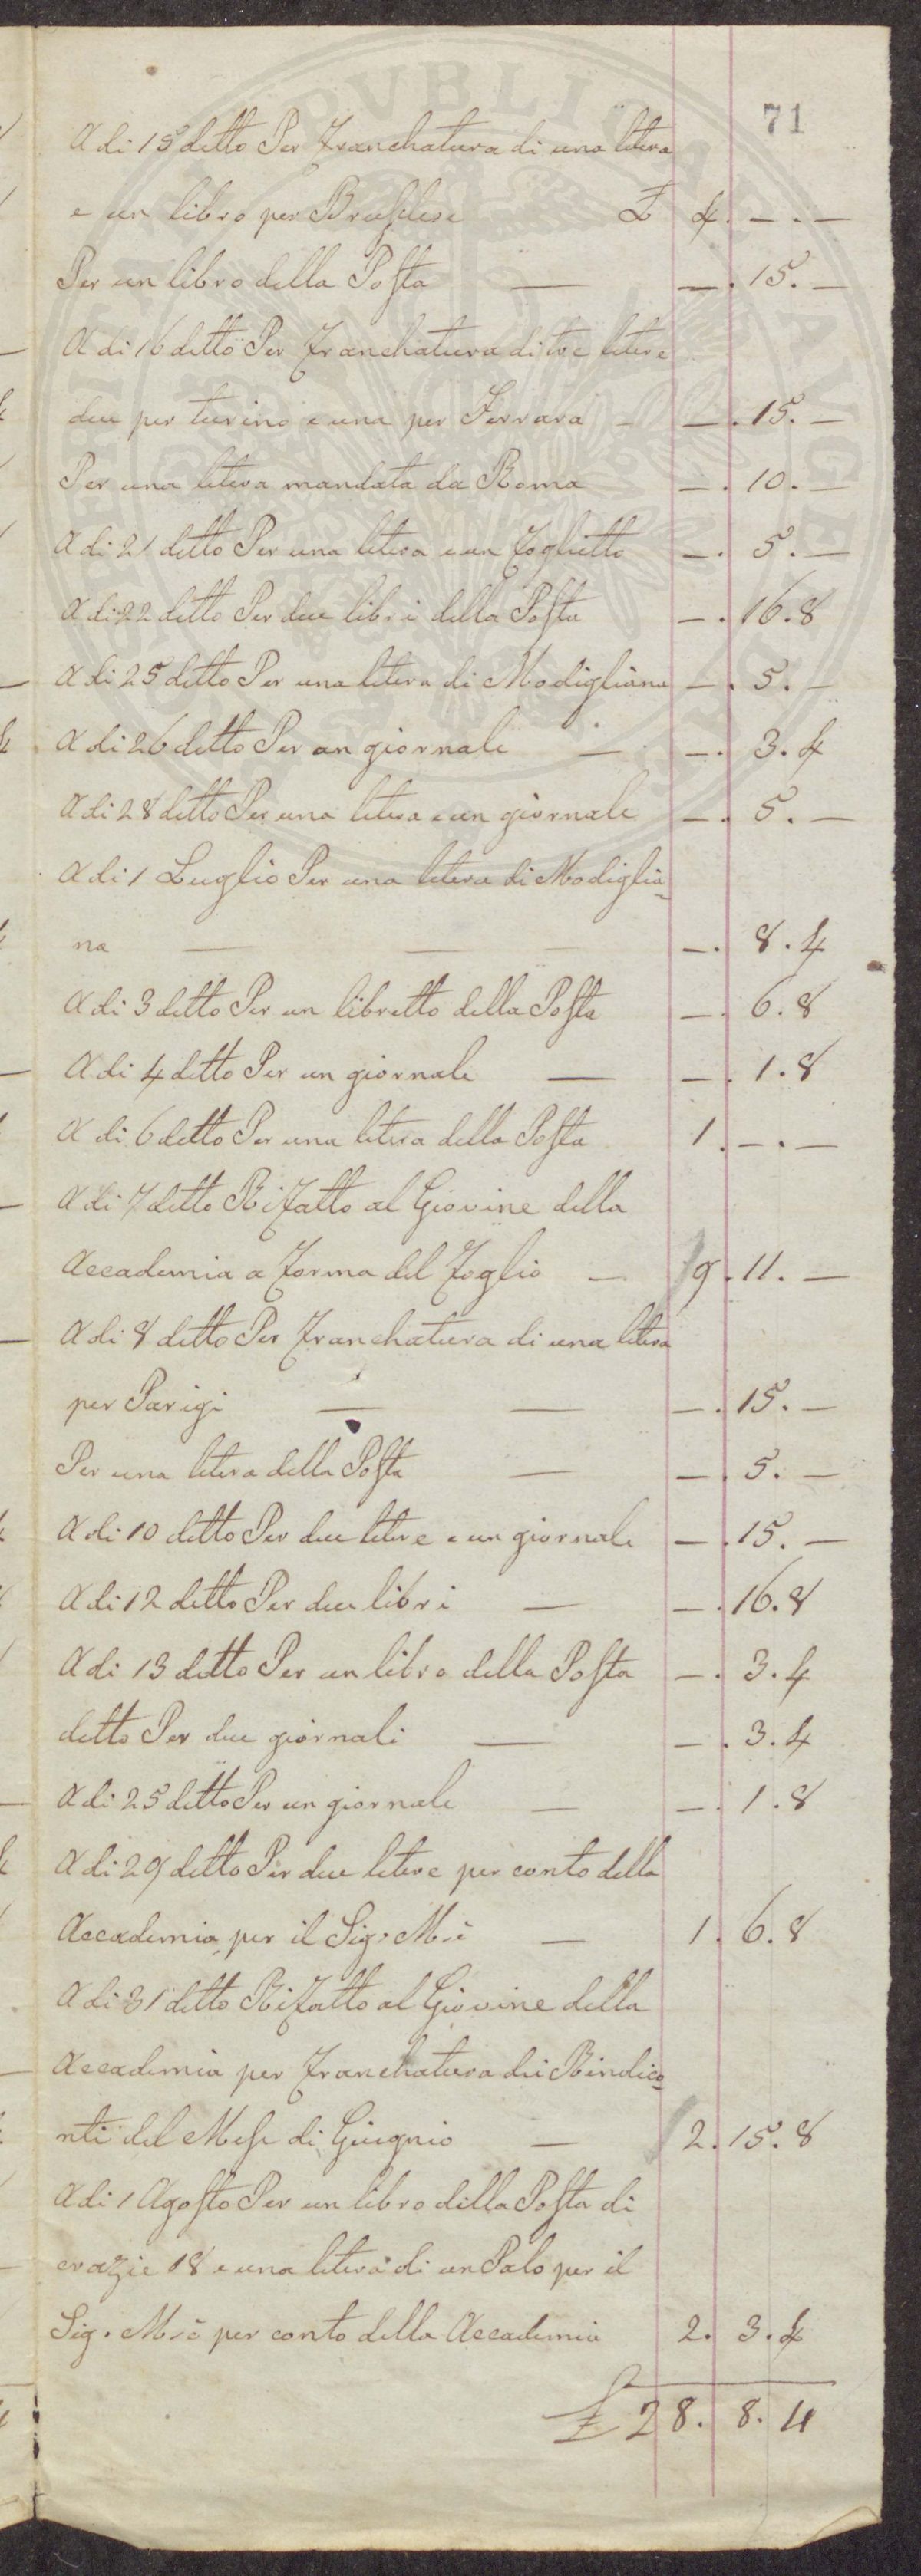 71
A di 15 detto Per Franchatura di una litera
e un libro per Bruselese £ 4. — . —
Per un libro della Posta — — . 15. —
A di 16 detto Per Franchatura di tre litere
due per turino e una per Ferrara — — . 15. —
Per una litera mandata da Roma — . 10. —
A di 21 detto Per una litera e un Foglietto — . 5. —
A di 22 detto Per due libri della Posta — . 16. 8
A di 25 detto Per una litera di Modigliana — . 5. —
A di 26 detto Per un giornale — — . 3. 4
A di 28 detto Per una litera e un giornale — . 5. —
A di 1 Luglio Per una litera di Modiglia=
na — — — — . 8. 4
A di 3 detto Per un libretto della Posta — . 6. 8
A di 4 detto Per un giornale — — . 1. 8
A di 6 detto Per una litera della Posta 1. — . —
A di 7 detto Rifatto al Giovine della
Accademia a Forma del Foglio — 9. 11. —
A di 8 detto Per Franchatura di una litera
per Parigi — — — . 15. —
Per una litera della Posta — — . 5. —
A di 10 detto Per due litere e un giornale — . 15. —
A di 12 detto Per due libri — — . 16. 8
A di 13 detto Per un libro della Posta — . 3. 4
detto Per due giornali — — . 3. 4
A di 25 detto Per un giornale — — . 1. 8
A di 29 detto Per due litere per conto della
Accademia per il Sig. — 1. 6. 8
A di 31 detto Rifatto al Giovine della
Accademia per Franchatura dei Rindico=
nti del Mese di Giugnio — 2. 15. 8
A di 1 Agosto Per un libro della Posta di
crazie 18 e una litera di un Palo per il
Sig. per conto della Accademia 2. 3. 4
£ 28. 8. 4